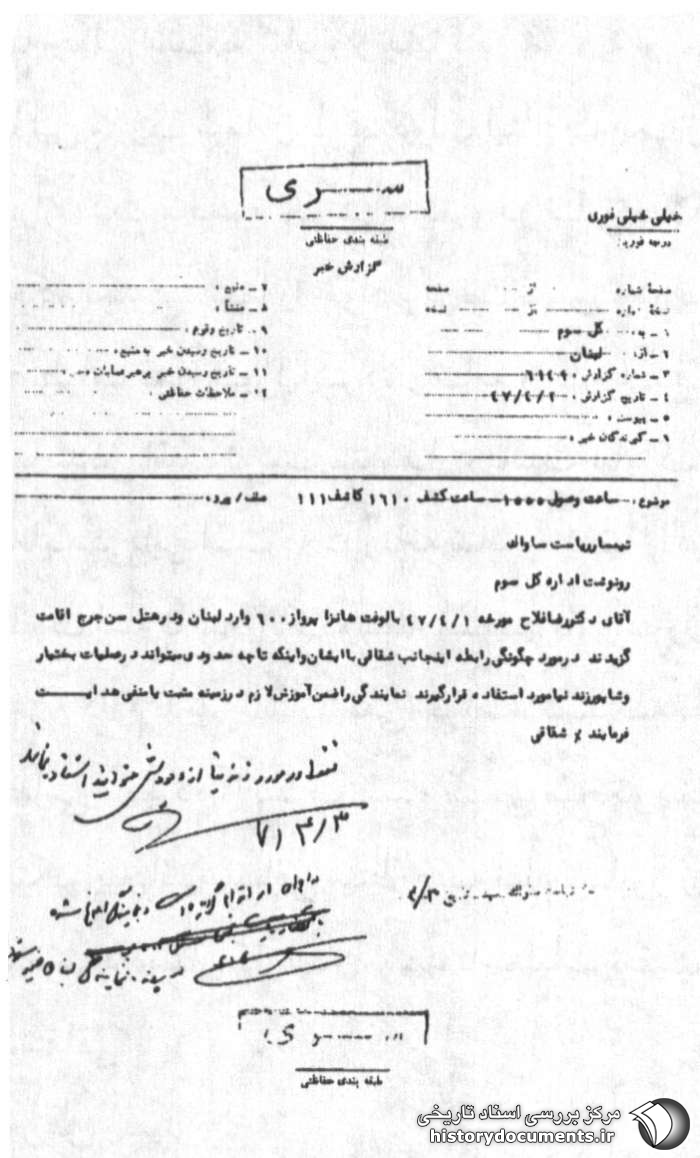 سری
طبقه بندی حفاظتی
گزارش خبر
خیلی خیلی فوری
درجه فوریت
صفحهٔ شماره از صفحه
نسخهٔ شماره از نسخه
۱ – به: کل سوم
۲ – از: لبنان
۳ – شماره گزارش:
۴ – تاریخ گزارش: ۴۷/۴/۲
۵ – پیوست:
۶ – گیرندگان خبر:
۷ – منبع:
۸ – منشأ:
۹ – تاریخ وقوع:
۱۰ – تاریخ رسیدن خبر به منبع:
۱۱ – تاریخ رسیدن خبر برهبر عملیات:
۱۲ – ملاحظات حفاظتی:
موضوع: ساعت وصول ۱۵۵۵ – ساعت کشف ۱۶۱۰ کاشف ۱۱۱
عطف / پیرو:
تیمسار ریاست ساواک
رونوشت اداره کل سوم
آقای دکتر رضا فلاح مورخه ۴۷/۴/۱ با لوفت هانزا پرواز ۶۰۰ وارد لبنان و در هتل سن جرج اقامت
گزیدند در مورد چگونگی رابطه اینجانب شقاقی با ایشان و اینکه تا چه حدودی میتواند در عملیات بختیار
و شاپور زندنیا مورد استفاده قرار گیرند نمایندگی را ضمن آموزش لازم در زمینه مثبت یا منفی هدایت
فرمایند ٪ شقاقی
فقط در مورد زندنیا از وجودش میتوانید استفاده نمائید
۴/۳
طبقه بندی حفاظتی
مرکز بررسی اسناد تاریخی
historydocuments.ir